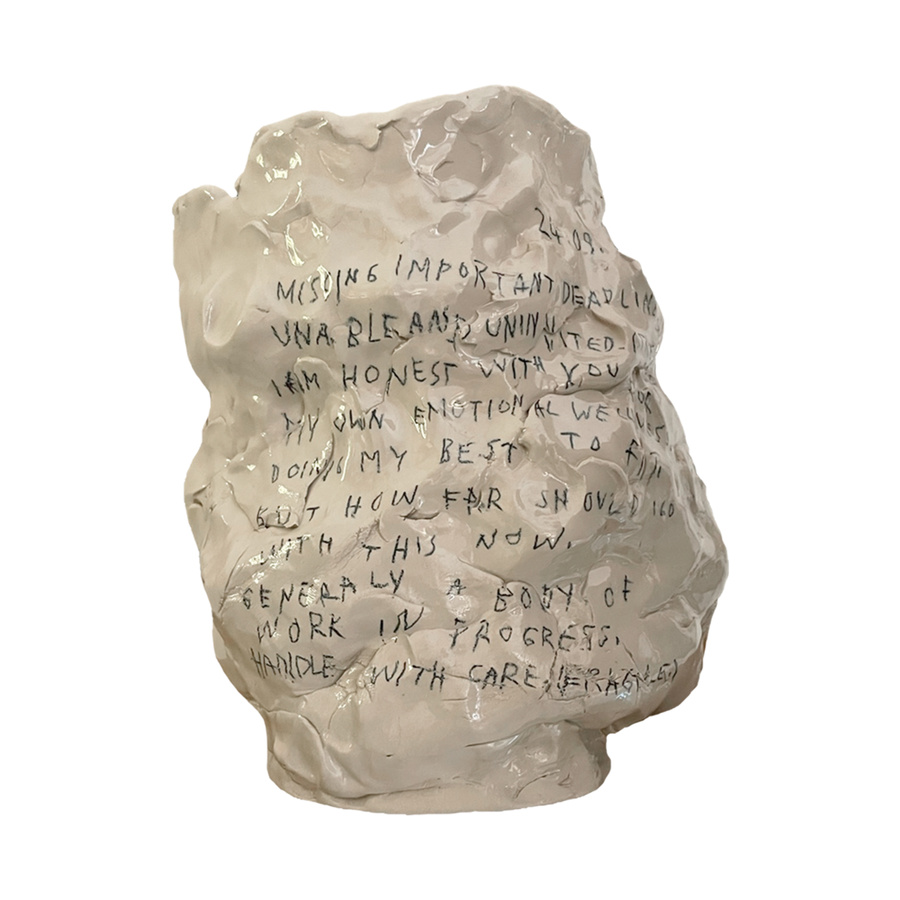 24.09.
MISSING IMPORTANT DEADLINE
UNABLE AND UNINVITED.
I AM HONEST WITH YOU
MY OWN EMOTIONAL WELLNESS
DOING MY BEST TO
BUT HOW FAR SHOULD I GO
WITH THIS NOW.
GENERALY A BODY OF
WORK IN PROGRESS.
HANDLE WITH CARE.